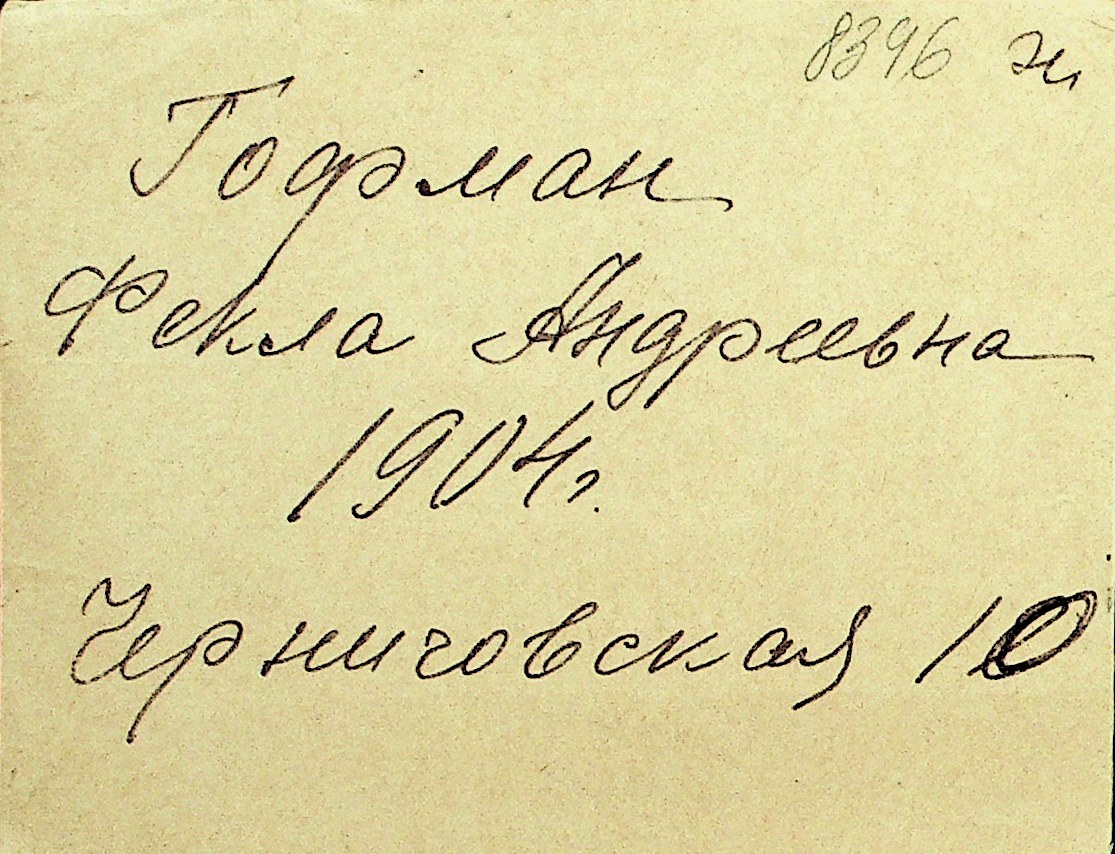 8396
Гофман
Фекла Андреевна
1904г.
Черниговская 10